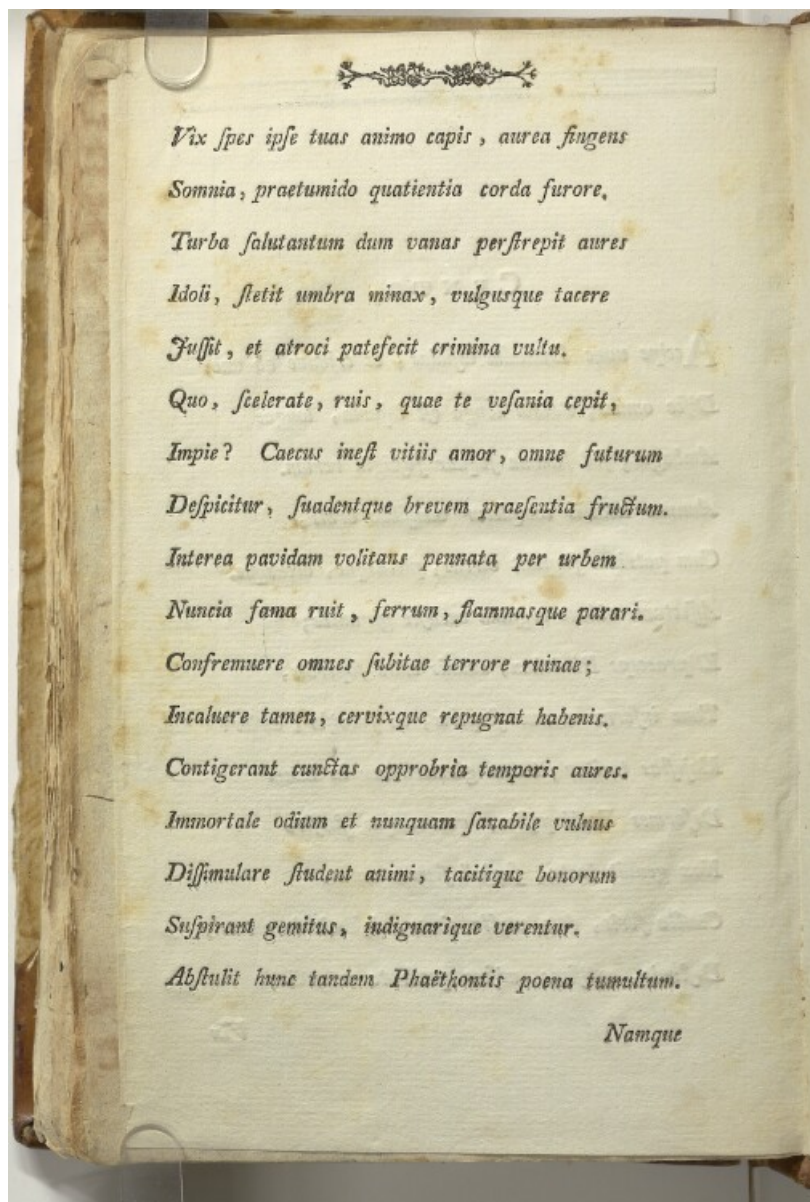 Vix ſpes ipſe tuas animo capis, aurea fingens
Somnia, praetumido quatientia corda furore.
Turba ſalutantum dum vanas perſtrepit aures
Idoli, ſtetit umbra minax, vulgusque tacere
Juſſit, et atroci patefecit crimina vultu.
Quo, ſcelerate, ruis, quae te veſania cepit,
Impie? Caecus ineſt vitiis amor, omne futurum
Deſpicitur, ſuadentque brevem praeſentia fructum.
Interea pavidam volitans pennata per urbem
Nuncia fama ruit, ferrum, flammasque parari.
Confremuere omnes ſubitae terrore ruinae;
Incaluere tamen, cervixque repugnat habenis.
Contigerant cunctas opprobria temporis aures.
Immortale odium et nunquam ſanabile vulnus
Diſſimulare ſtudent animi, tacitique bonorum
Suſpirant gemitus, indignarique verentur.
Abſtulit hunc tandem Phaëthontis poena tumultum.
Namque